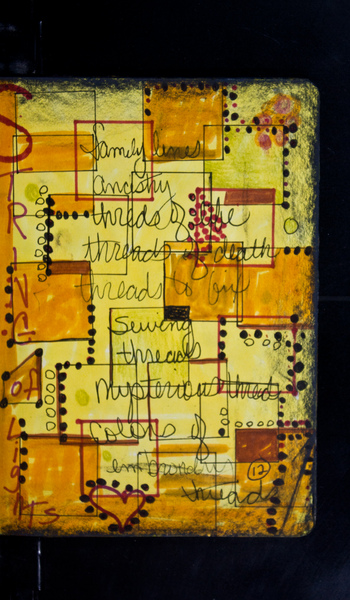 STRING of Lights
family lines
ancestry
threads of life
threads of death
threads to
sewing
threads
mysterious thread
colors of
embroidery
12
threads